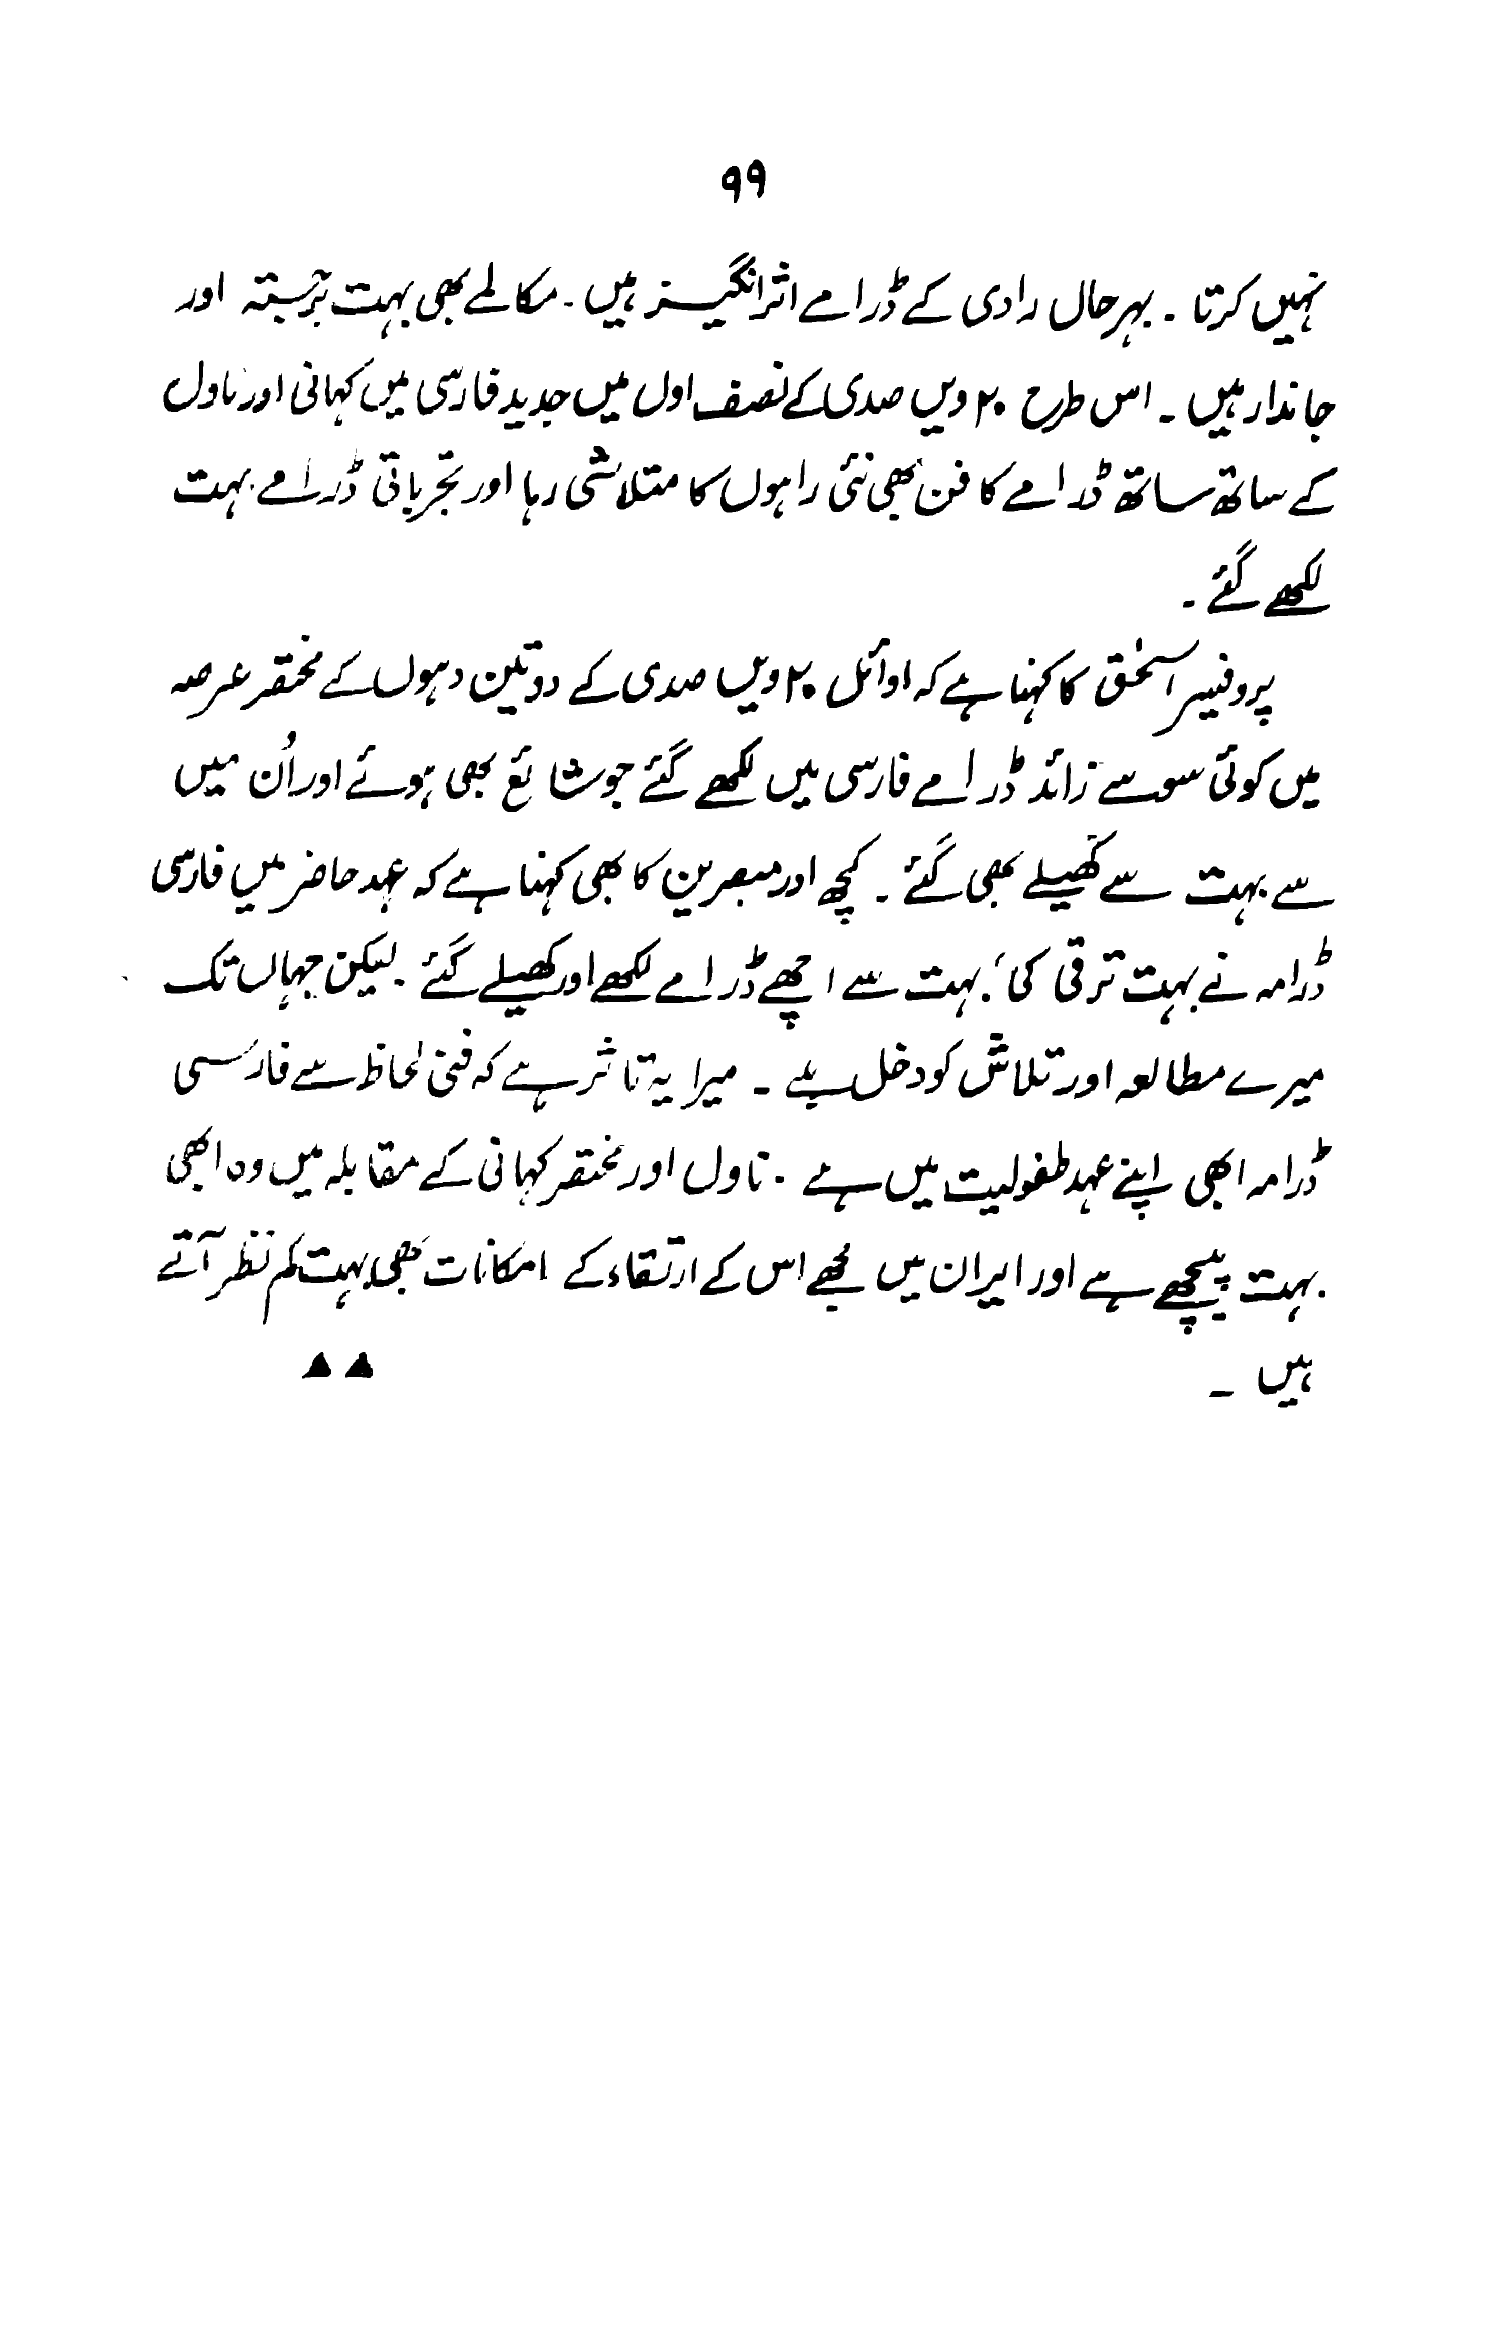 ۹۹
نہیں کرتا ۔ بہرحال رادی کے ڈرامے اثرانگیز ہیں ۔ مکالمے بھی بہت برجستہ اور
جاندار ہیں ۔ اس طرح ۲۰ ویں صدی کے نصف اول میں جدید فارسی میں کہانی اور ناول
کے ساتھ ساتھ ڈرامے کا فن بھی نئی راہوں کا متلاشی رہا اور تجرباتی ڈرامے بہت
لکھے گئے ۔
پروفیسر اسحٰق کا کہنا ہے کہ اوائل ۲۰ ویں صدی کے دو تین دہوں کے مختصر عرصہ
میں کوئی سو سے زائد ڈرامے فارسی میں لکھے گئے جو شائع بھی ہوئے اور اُن میں
سے بہت سے کھیلے بھی گئے ۔ کچھ اور مبصرین کا بھی کہنا ہے کہ عہد حاضر میں فارسی
ڈرامہ نے بہت ترقی کی، بہت سے اچھے ڈرامے لکھے اور کھیلے گئے ۔ لیکن جہاں تک
میرے مطالعہ اور تلاش کو دخل ہے ۔ میرا یہ تاثر ہے کہ فنی لحاظ سے فارسی
ڈرامہ ابھی اپنے عہد طفولیت میں ہے ۔ ناول اور مختصر کہانی کے مقابلہ میں وہ ابھی
بہت پیچھے ہے اور ایران میں مجھے اس کے ارتقاء کے امکانات بھی بہت کم نظر آتے
ہیں ۔ ▲▲